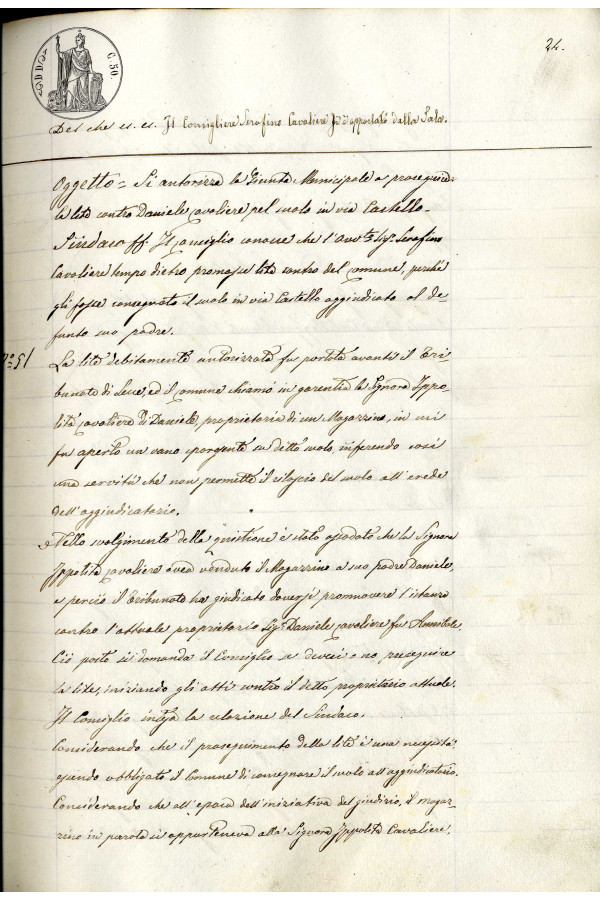 24.
C. 50
Del che u. u. Il Consigliere Serafino Cavaliere si è appartato dalla Sala.
Oggetto = Si autorizza la Giunta Municipale a proseguire
la lite contro Daniele Cavaliere pel suolo in via Castello.
Sindaco ff. Il Consiglio conosce che l'Avv.to Sig. Serafino
Cavaliere tempo dietro promosse lite contro del Comune, perché
gli fosse consegnato il suolo in via Castello aggiudicato al de-
funto suo padre.
N° 51
La lite debitamente autorizzata fu portata avanti il Tri-
bunale di Lecce, ed il Comune chiamò in garentia la Signora Ippo-
lita Cavaliere di Daniele, proprietaria di un Magazzino, in cui
fu aperto un vano sporgente su detto suolo, inferendo così
una servitù che non permette il rilascio del suolo all'erede
dell'aggiudicatario.
Nello svolgimento della quistione è stato assodato che la Signora
Ippolita Cavaliere avea venduto il Magazzino a suo padre Daniele,
e perciò il Tribunale ha giudicato doversi promuovere l'istanza
contro l'attuale proprietario Sig. Daniele Cavaliere fu
Ciò posto si domanda il Consiglio se devesi o no proseguire
la lite, iniziando gli atti contro il detto proprietario attuale.
Il Consiglio intesa la relazione del Sindaco.
Considerando che il proseguimento della lite è una necessità
essendo obbligato il Comune di consegnare il suolo all'aggiudicatario.
Considerando che all'epoca dell'iniziativa del giudizio, il magaz-
zino in parola si apparteneva alla Signora Ippolita Cavaliere,